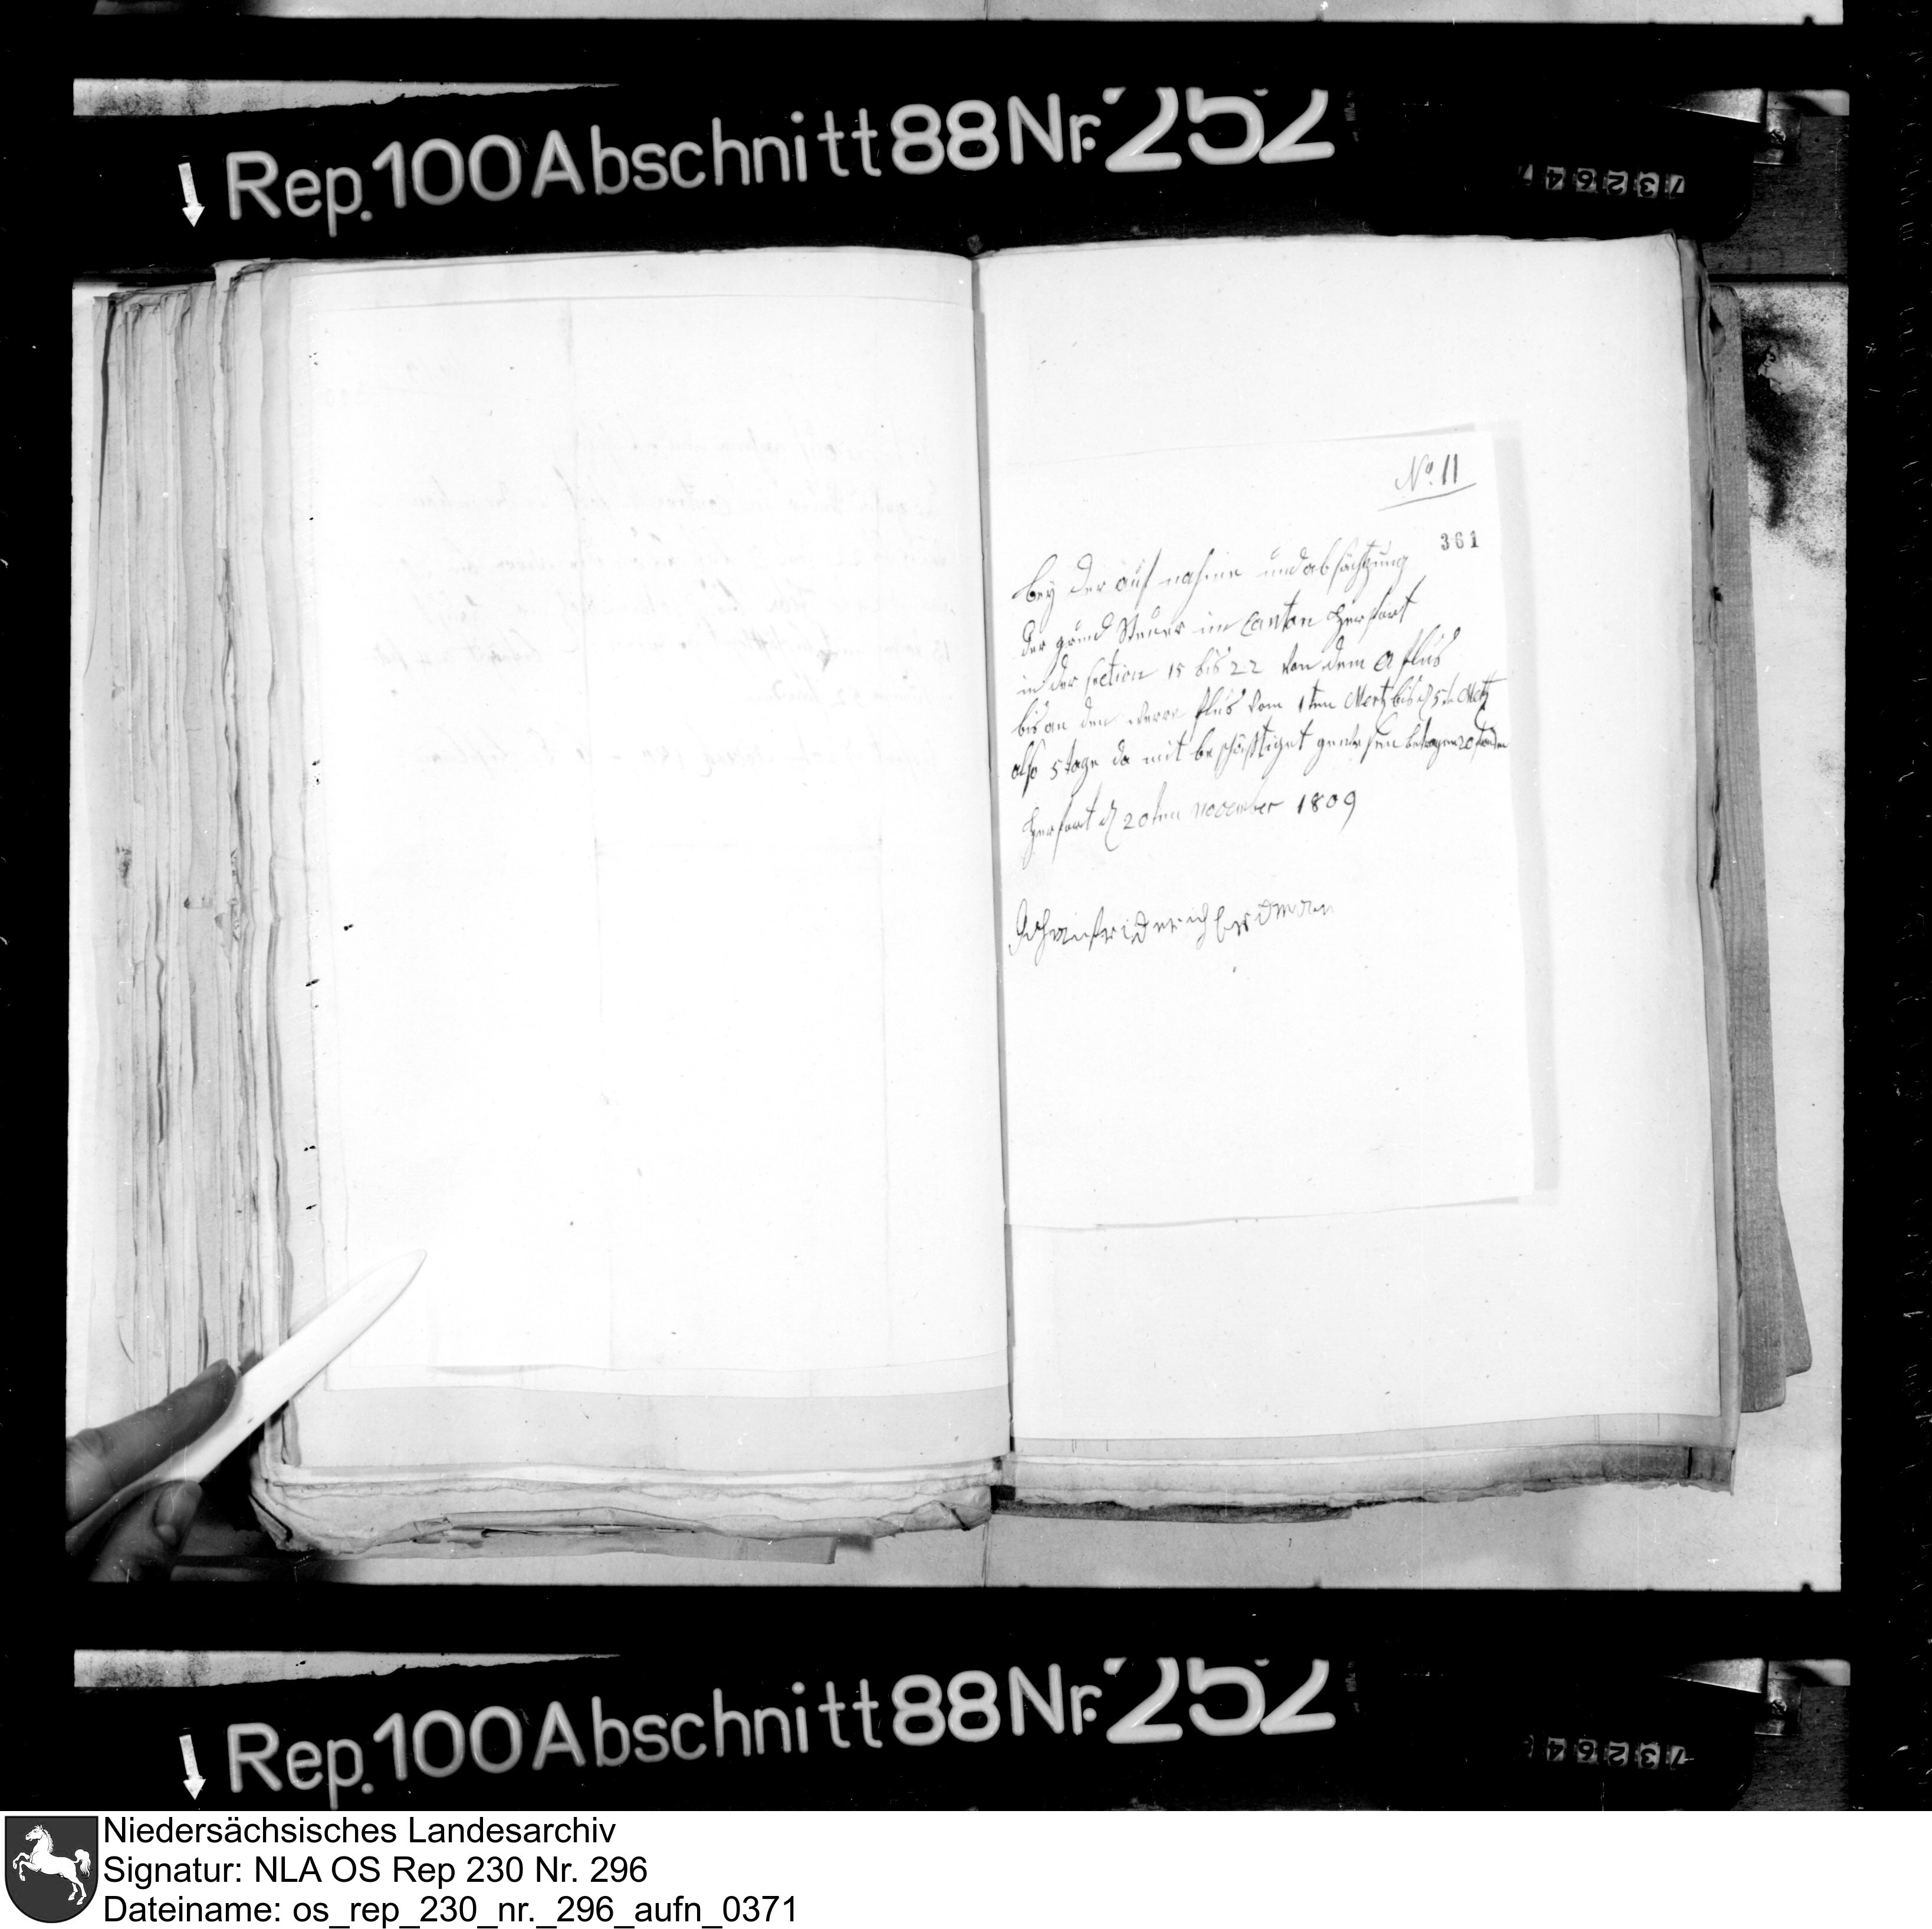 Rep. 100 Abschnitt 88 Nr. 252
732647
No. 11
361
bey der auf nahme und abschätzung
der grund Steuer im Canton Herfort
in der section 15 bis 22 von dem A flus
bis an den werre flus vom 1ten Mertz bis d 5 te Mertz
also 5 tage da mit beschäftiget gewesen betragen 20 stunden
Herfort d 20ten november 1809
Johan friderich Erdman
Rep. 100 Abschnitt 88 Nr. 252
73264
Niedersächsisches Landesarchiv
Signatur: NLA OS Rep 230 Nr. 296
Dateiname: os_rep_230_nr._296_aufn_0371